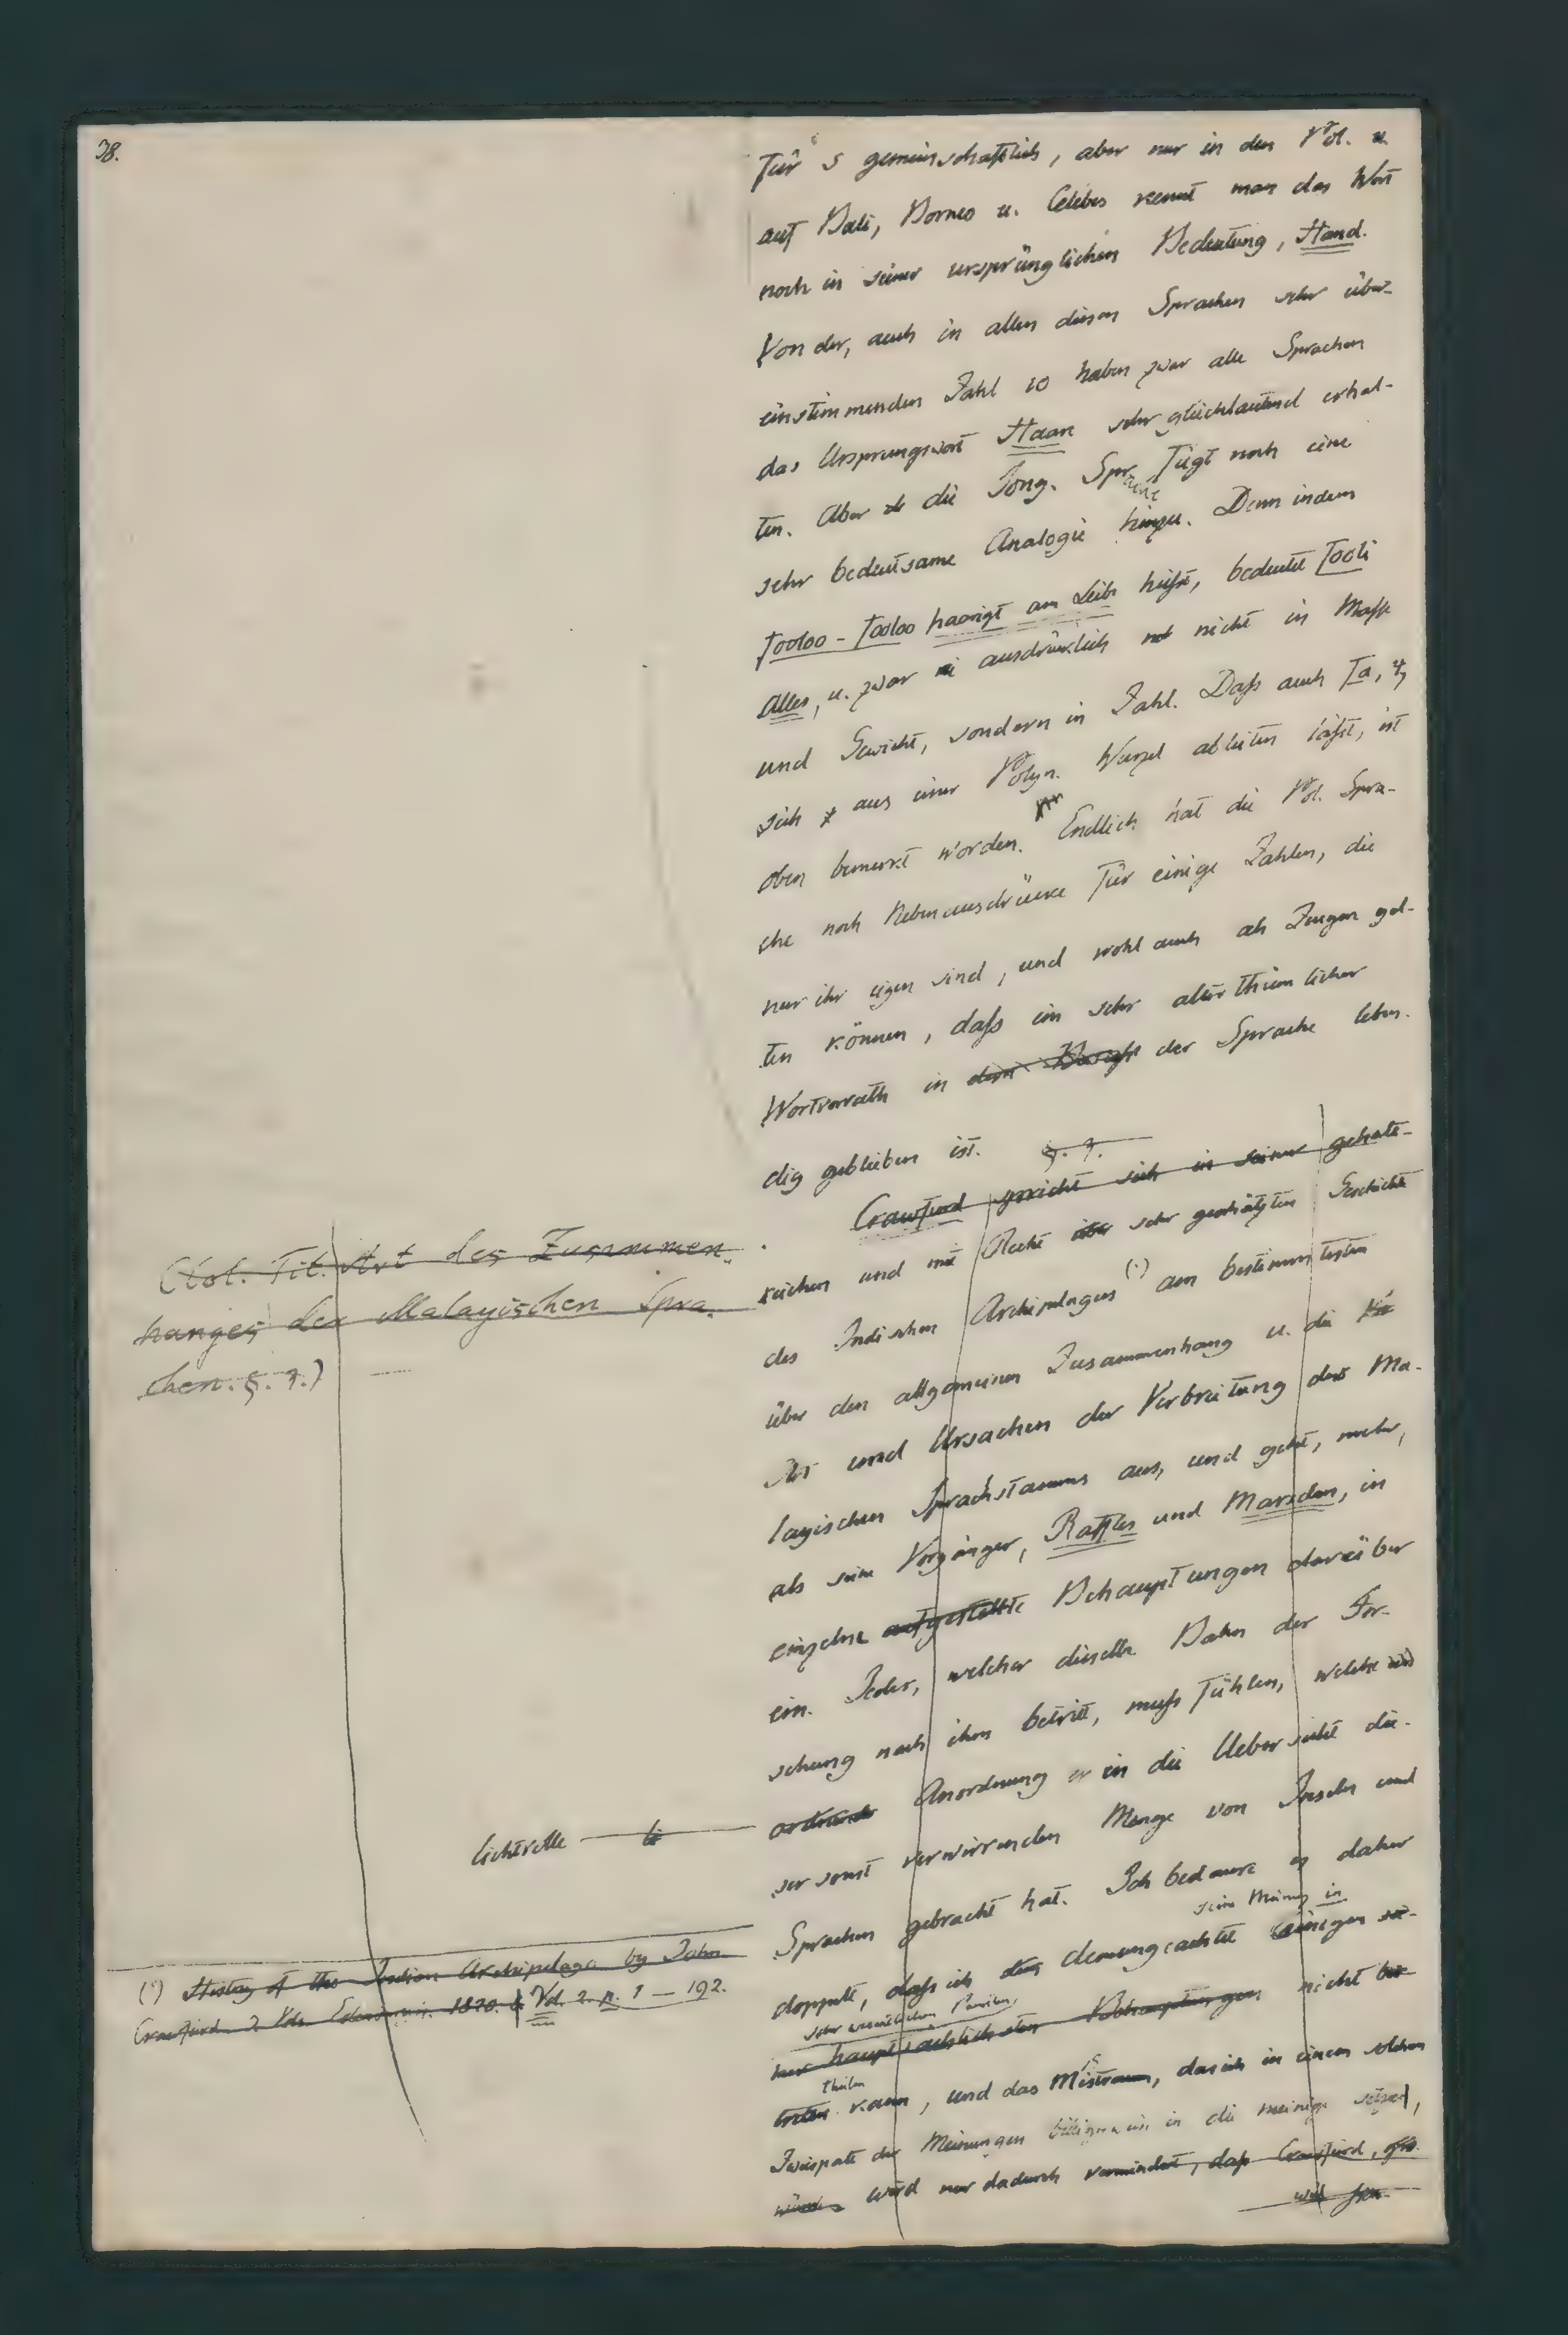 38.
für 5 gemeinschaftlich, aber nur in den Pol. u.
auf Bali, Borneo u. Celebes kennt man das Wort
noch in seiner ursprünglichen Bedeutung, Hand.
Von der, auch in allen diesen Sprachen sehr über-
einstimmenden Zahl 10 haben zwar alle Sprachen
das Ursprungswort Haare sehr gleichlautend erhal-
ten. Aber die Tong. Sprache fügt noch eine
sehr bedeutsame Analogie hinzu. Denn indem
fooloo-fooloo haarigt am Leibe heifst, bedeutet fooli
Alles, u. zwar ausdrücklich nicht in Mafse
und Gewicht, sondern in Zahl. Dafs auch fa, 4,
sich aus einer Polyn. Wurzel ableiten läfst, ist
oben bemerkt worden. Endlich hat die Pol. Spra-
che noch Nebenausdrücke für einige Zahlen, die
nur ihr eigen sind, und wohl auch als Zeugen gel-
ten können, dafs ein sehr alterthümlicher
Wortvorrath in der Sprache leben-
dig geblieben ist.
§. 7.
Crawfurd spricht sich in seiner gehalt-
reichen und mit Recht sehr geschätzten Geschichte
des Indischen Archipelagus (*) am bestimmtesten
über den allgemeinen Zusammenhang u. die
Art und Ursachen der Verbreitung des Ma-
layischen Sprachstamms aus, und geht, mehr,
als seine Vorgänger, Raffles und Marsden, in
einzelne aufgestellte Behauptungen darüber
ein. Jeder, welcher dieselbe Bahn der For-
schung nach ihm betritt, mufs fühlen, welche
Anordnung er in die Uebersicht die-
ser sonst verwirrenden Menge von Inseln und
Sprachen gebracht hat. Ich bedaure es daher
seine Meinung in
doppelt, dafs ich demungeachtet einigen
sehr wesentlichen Punkten,
hauptsächlichsten Behauptungen nicht
theilen
kann, und das Mistraun, das ich in einem solchen
Zwiespalt der Meinungen billigerweise in die meinige setze,
wird nur dadurch vermindert, dafs Crawfurd,
(Col. Tit. Art des Zusammen-
hanges der Malayischen Spra-
chen. §. 7.)
lichtvolle
(*) History of the Indian Archipelago by John
Crawfurd. 3 Vols. 1820. Vol. 2. p. 1 — 192.